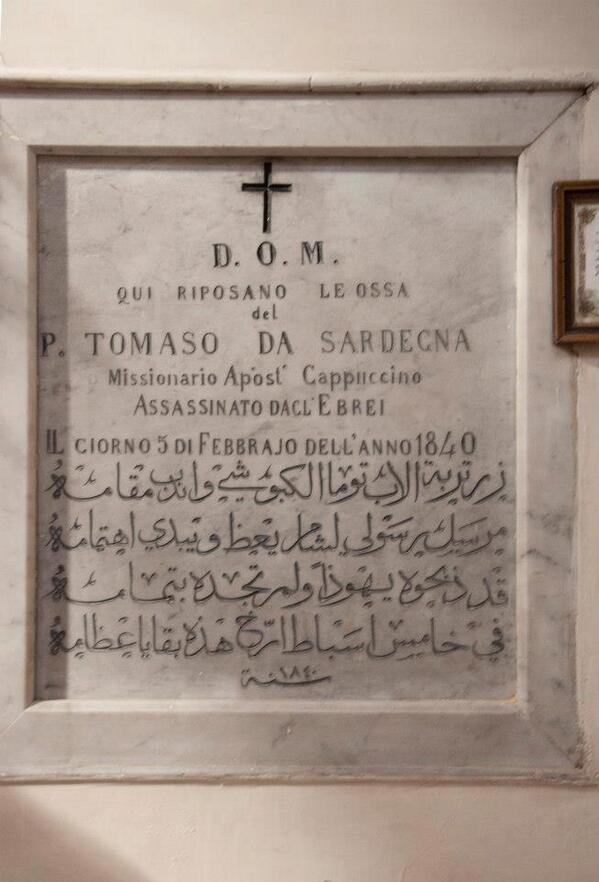 D. O. M.
QUI RIPOSANO LE OSSA
del
P. TOMASO DA SARDEGNA
Missionario Ap'ost' Cappuccino
ASSASSINATO DAGL'EBREI
IL GIORNO 5 DI FEBBRAJO DELL'ANNO 1840
زر تربة الاب توما الكبوشي واندب مقامه
مرسيل برستولي لشام يعظ ويبدي اهتمامه
قد ذبحوه يهوداً ولم تجده بتمامه
في خامس اسباط ارخ هذه بقايا عظامه
سنة ١٨٤٠